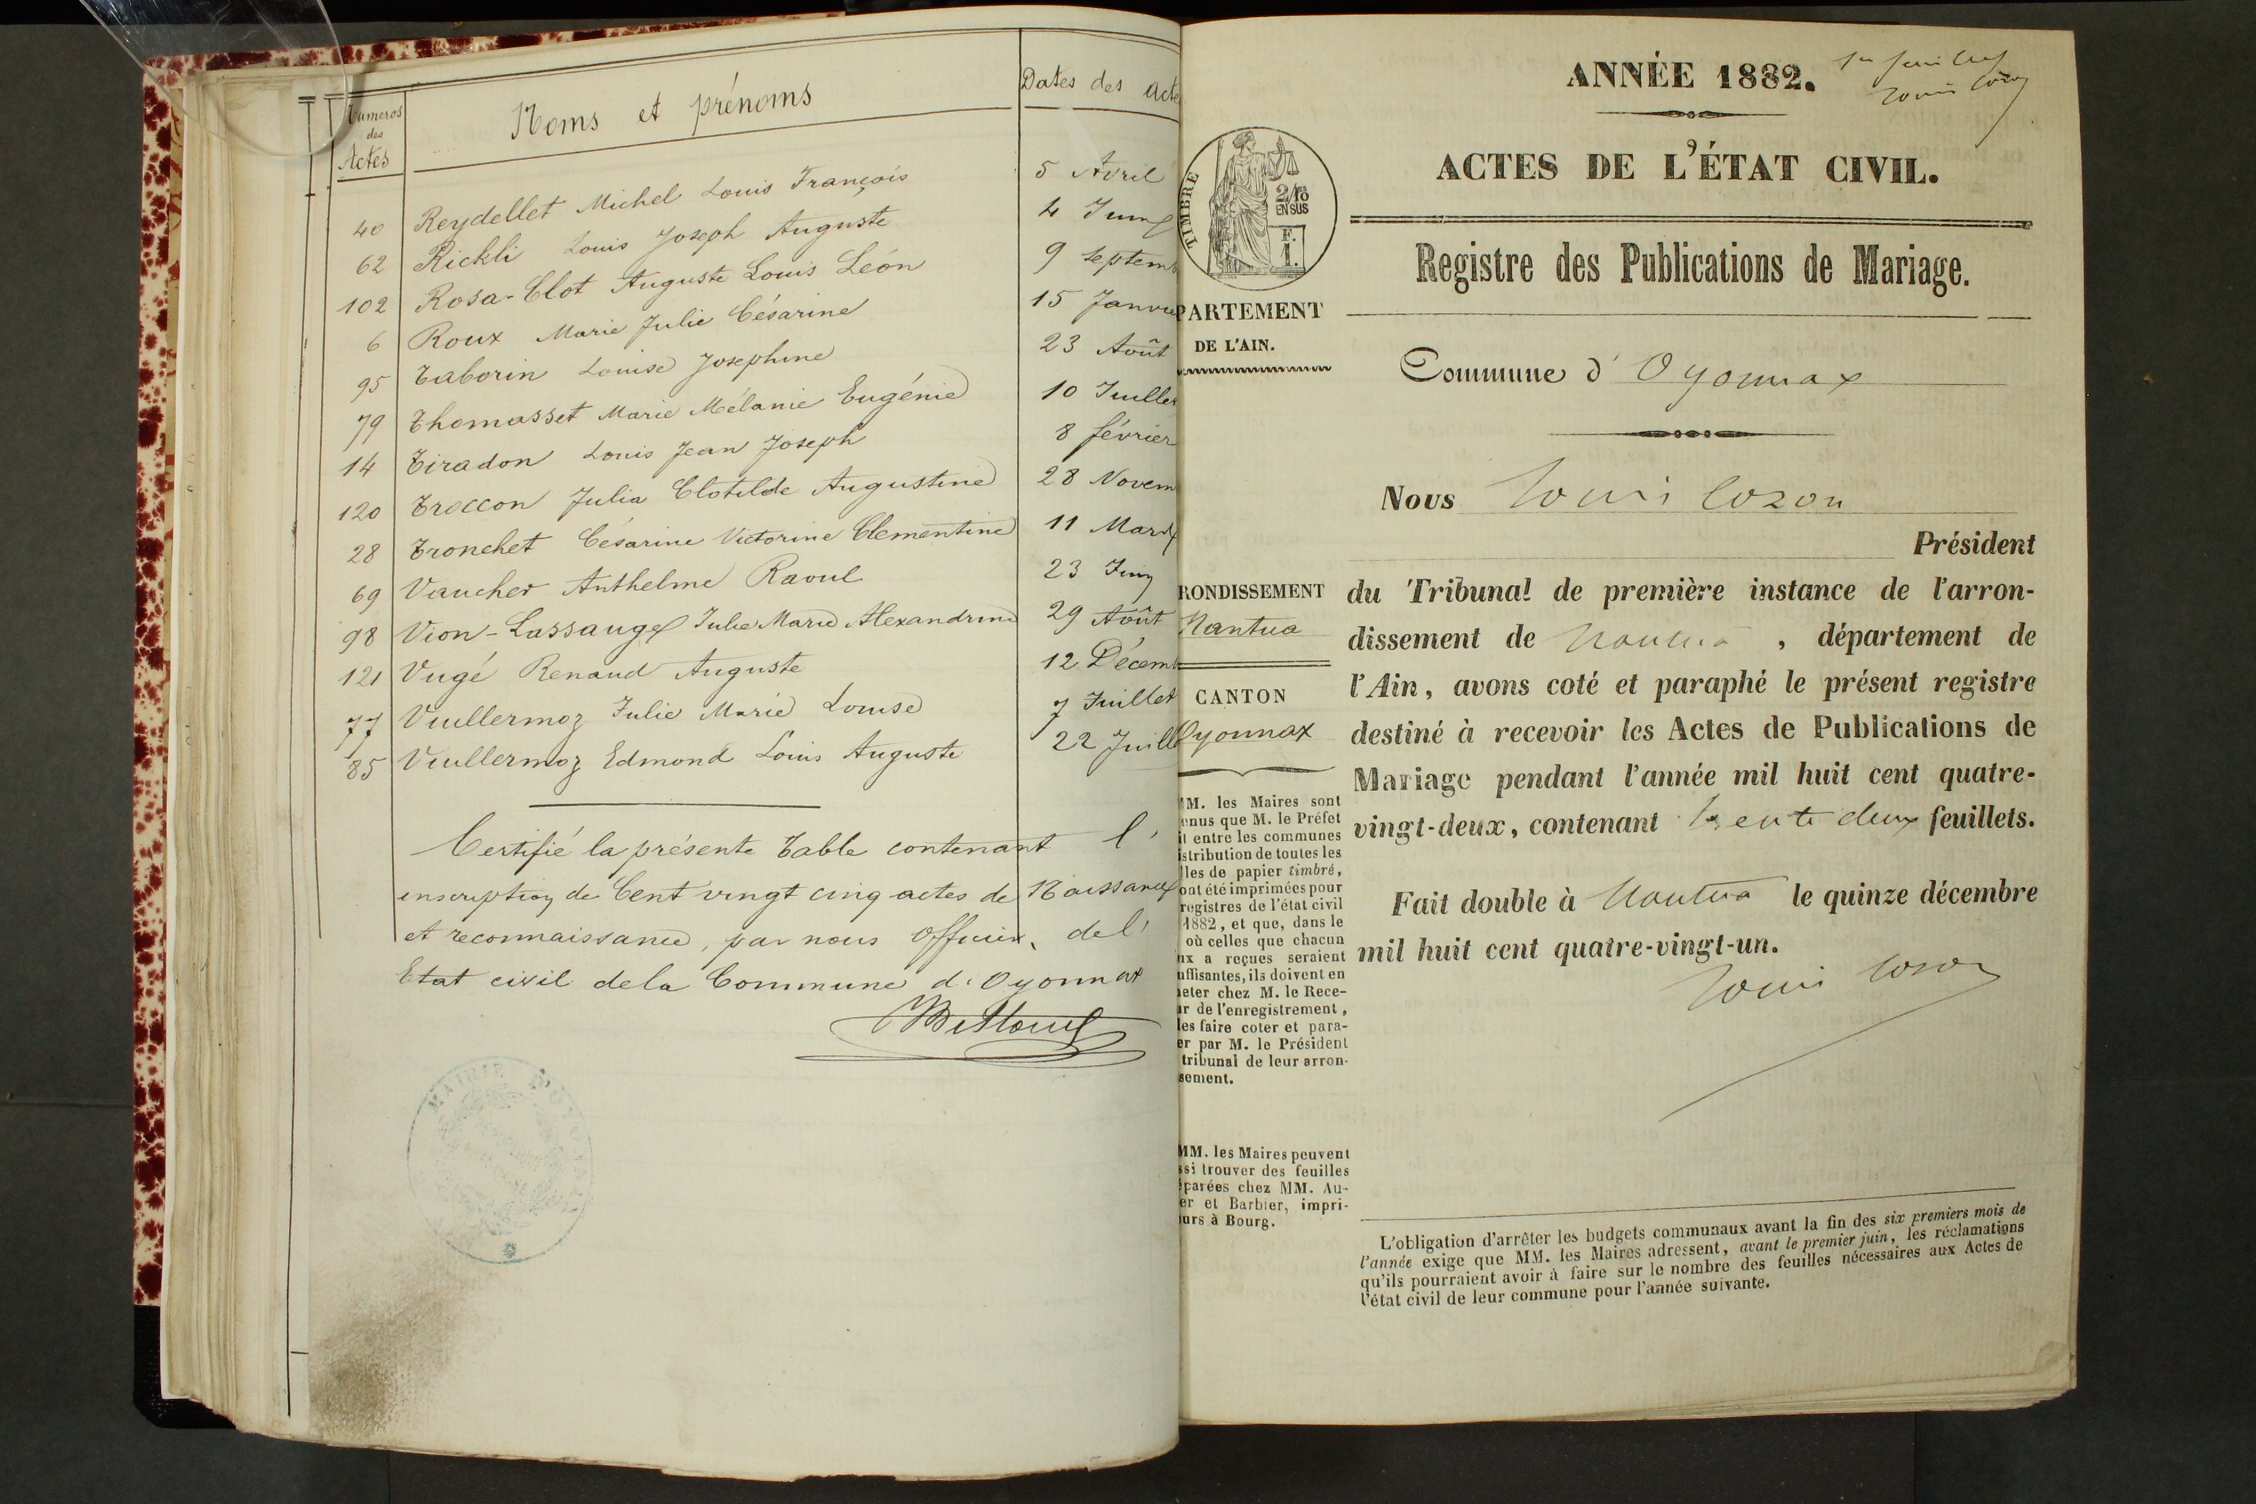 Numeros des Actes
Noms et prénoms
Dates des Acte
40 Reydellet Michel Louis François 5 Avril
62 Rickli Louis Joseph Auguste 4 Juin
102 Rosa-Clot Auguste Louis Léon 9 Septemb
6 Roux Marie Julie Césarine 15 Janvie
95 Taborin Louise Josephine 23 Août
79 Thomasset Marie Mélanie Eugénie 10 Juillet
14 Tiradon Louis Jean Joseph 8 février
120 Troccon Julia Clotilde Augustine 28 Novem
28 Tronchet Césarine Victorine Clementine 11 Mars
69 Vaucher Anthelme Raoul 23 Juin
98 Vion-Lassauge Julie Marie Alexandrine 29 Août
121 Vugé Renaud Auguste 12 Décemb
77 Vuillermoz Julie Marie Louise 7 Juillet
85 Vuillermoz Edmond Louis Auguste 22 Juill
Certifié la présente Table contenant l'
inscription de Cent vingt cinq actes de Naissance
et reconnaissance, par nous Officier de l'
Etat civil de la Commune d'Oyonnax
MAIRIE
ANNÉE 1882.
1er feuillet
Louis Cozon
ACTES DE L'ÉTAT CIVIL.
TIMBRE
2/10
EN SUS
F.
1.
Registre des Publications de Mariage.
PARTEMENT
DE L'AIN.
Commune d'Oyonnax
Nous Louis Cozon
Président
du Tribunal de première instance de l'arron-
dissement de Nantua, département de
l'Ain, avons coté et paraphé le présent registre
destiné à recevoir les Actes de Publications de
Mariage pendant l'année mil huit cent quatre-
vingt-deux, contenant trente deux feuillets.
Fait double à Nantua le quinze décembre
mil huit cent quatre-vingt-un.
Louis Cozon
RONDISSEMENT
Nantua
CANTON
Oyonnax
M. les Maires sont
enus que M. le Préfet
it entre les communes
istribution de toutes les
lles de papier timbré,
ont été imprimées pour
registres de l'état civil
1882, et que, dans le
où celles que chacun
ux a reçues seraient
uffisantes, ils doivent en
eter chez M. le Rece-
ur de l'enregistrement,
les faire coter et para-
er par M. le Président
tribunal de leur arron-
sement.
MM. les Maires peuvent
ssi trouver des feuilles
éparées chez MM. Au-
er et Barbier, impri-
urs à Bourg.
L'obligation d'arrêter les budgets communaux avant la fin des six premiers mois de
l'année exige que MM. les Maires adressent, avant le premier juin, les réclamations
qu'ils pourraient avoir à faire sur le nombre des feuilles nécessaires aux Actes de
l'état civil de leur commune pour l'année suivante.